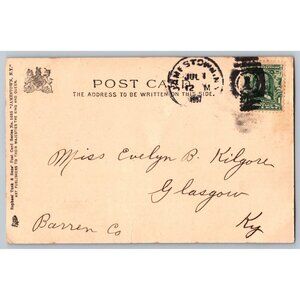 POST CARD
THE ADDRESS TO BE WRITTEN ON THIS SIDE.
JAMESTOWN, N.Y.
JUL 1
12 M
1907
1
Miss Evelyn B. Kilgore
Glasgow
Barren Co
Ky
Raphael Tuck & Sons' Post Card Series No. "JAMESTOWN, N.Y."
ART PUBLISHERS TO THEIR MAJESTIES THE KING AND QUEEN.